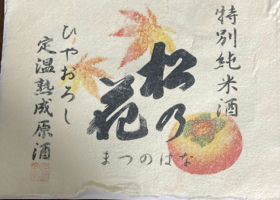 特別純米酒
松乃花
まつのはな
ひやおろし
定温熟成原酒